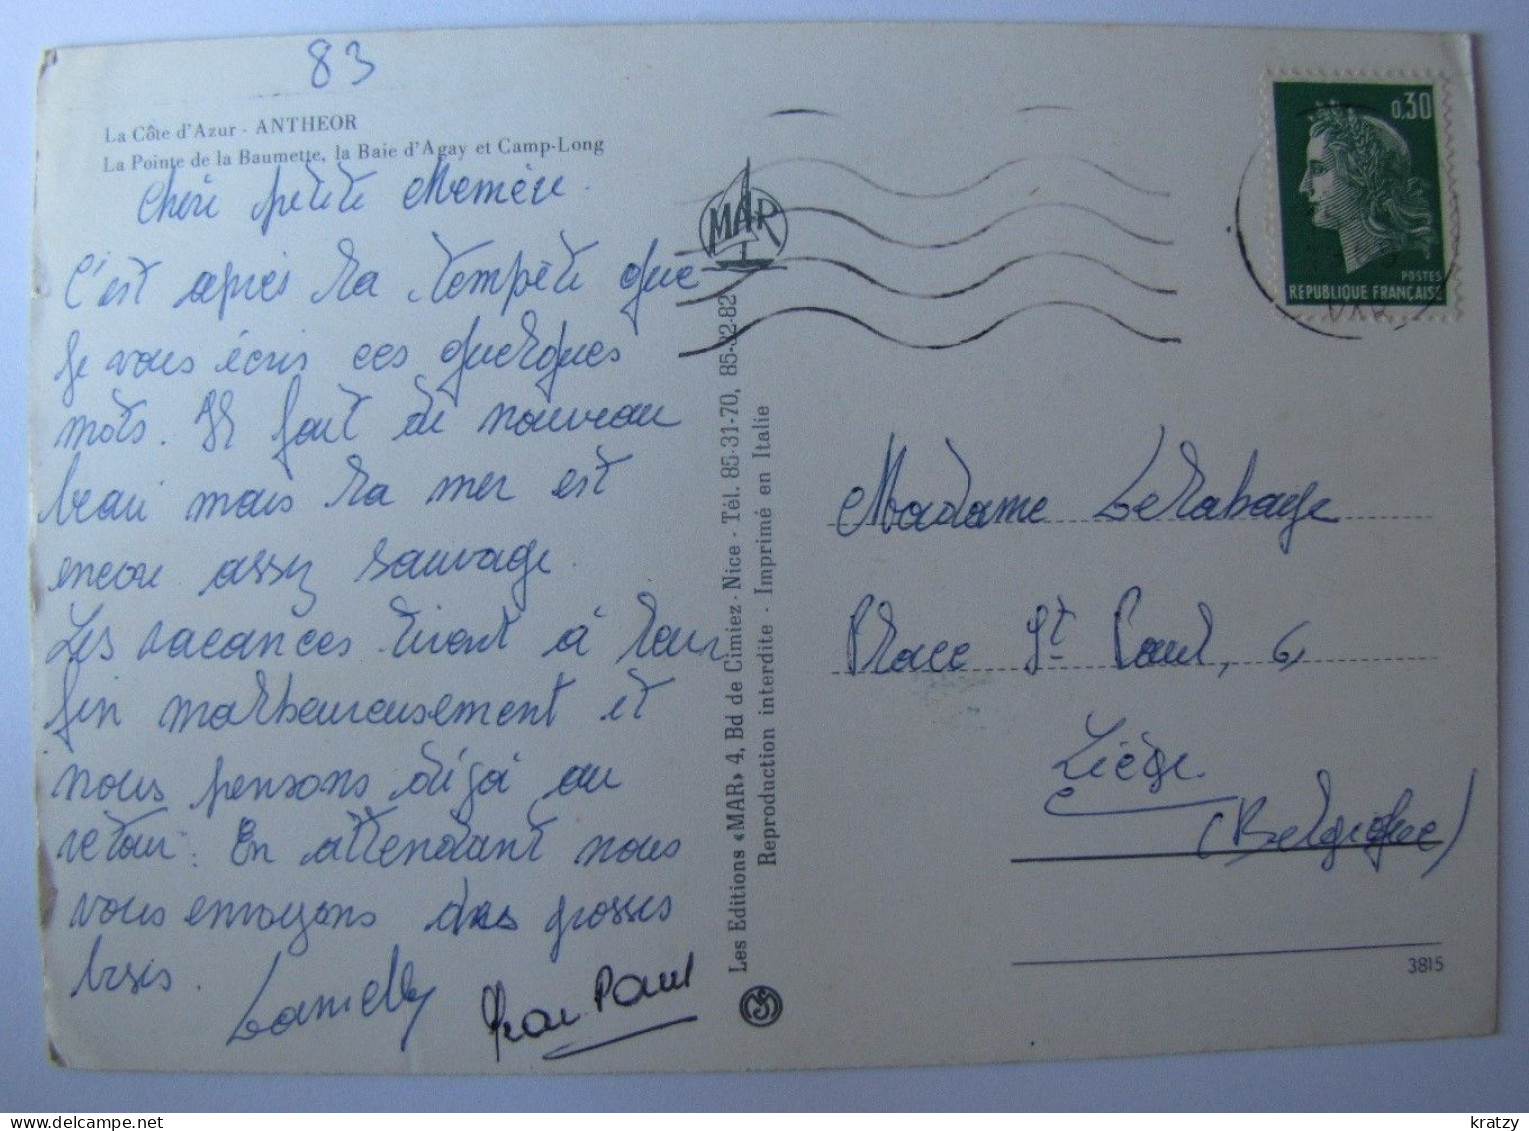 83
La Côte d'Azur - ANTHEOR
La Pointe de la Baumette, la Baie d'Agay et Camp-Long
Chère petite Memère.
C'est après la tempête que
je vous écris ces quelques
mots. Il fait de nouveau
beau mais la mer est
encore assez sauvage.
Les vacances tirent à leur
fin malheureusement et
nous pensons déjà au
retour. En attendant nous
vous envoyons des grosses
bises.
Jean-Paul
MAR
Les Editions «MAR» 4, Bd de Cimiez - Nice - Tél. 85-31-70, 85-32-82
Reproduction interdite - Imprimé en Italie
0,30
POSTES
REPUBLIQUE FRANÇAISE
Madame Delahaye
Place St Paul, 6,
Liège
(Belgique)
3815
kratzy